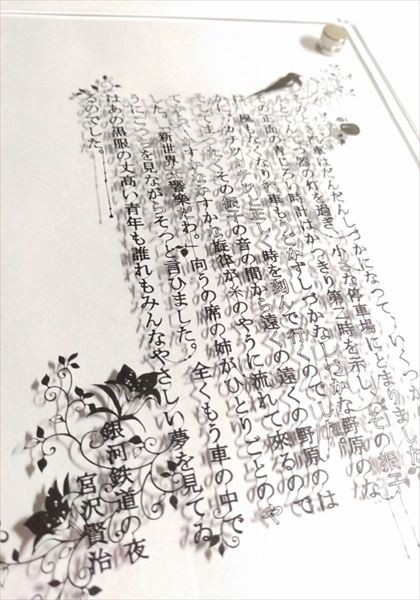 車はだんだんしづかになって、いくつか
器の灯を過ぎ、小さな停車場にとまりました。
の正面の青じろい時計はかっきり第二時を示し、その振子
風もなくなり汽車もうごかずしづかなしづかな野原のな
カチッカチッと正しく時を刻んで行くのでした。
そしてまったくその振子の音の間から遠くの遠くの野原のは
てから、かすかなかすかな旋律が糸のやうに流れて来るので
した。「新世界交響楽だわ。」向うの席の姉がひとりごとのや
うにこっちを見ながらそっと言ひました。全くもう車の中で
はあの黒服の丈高い青年も誰れもみんなやさしい夢を見てゐ
るのでした。
銀河鉄道の夜
宮沢賢治